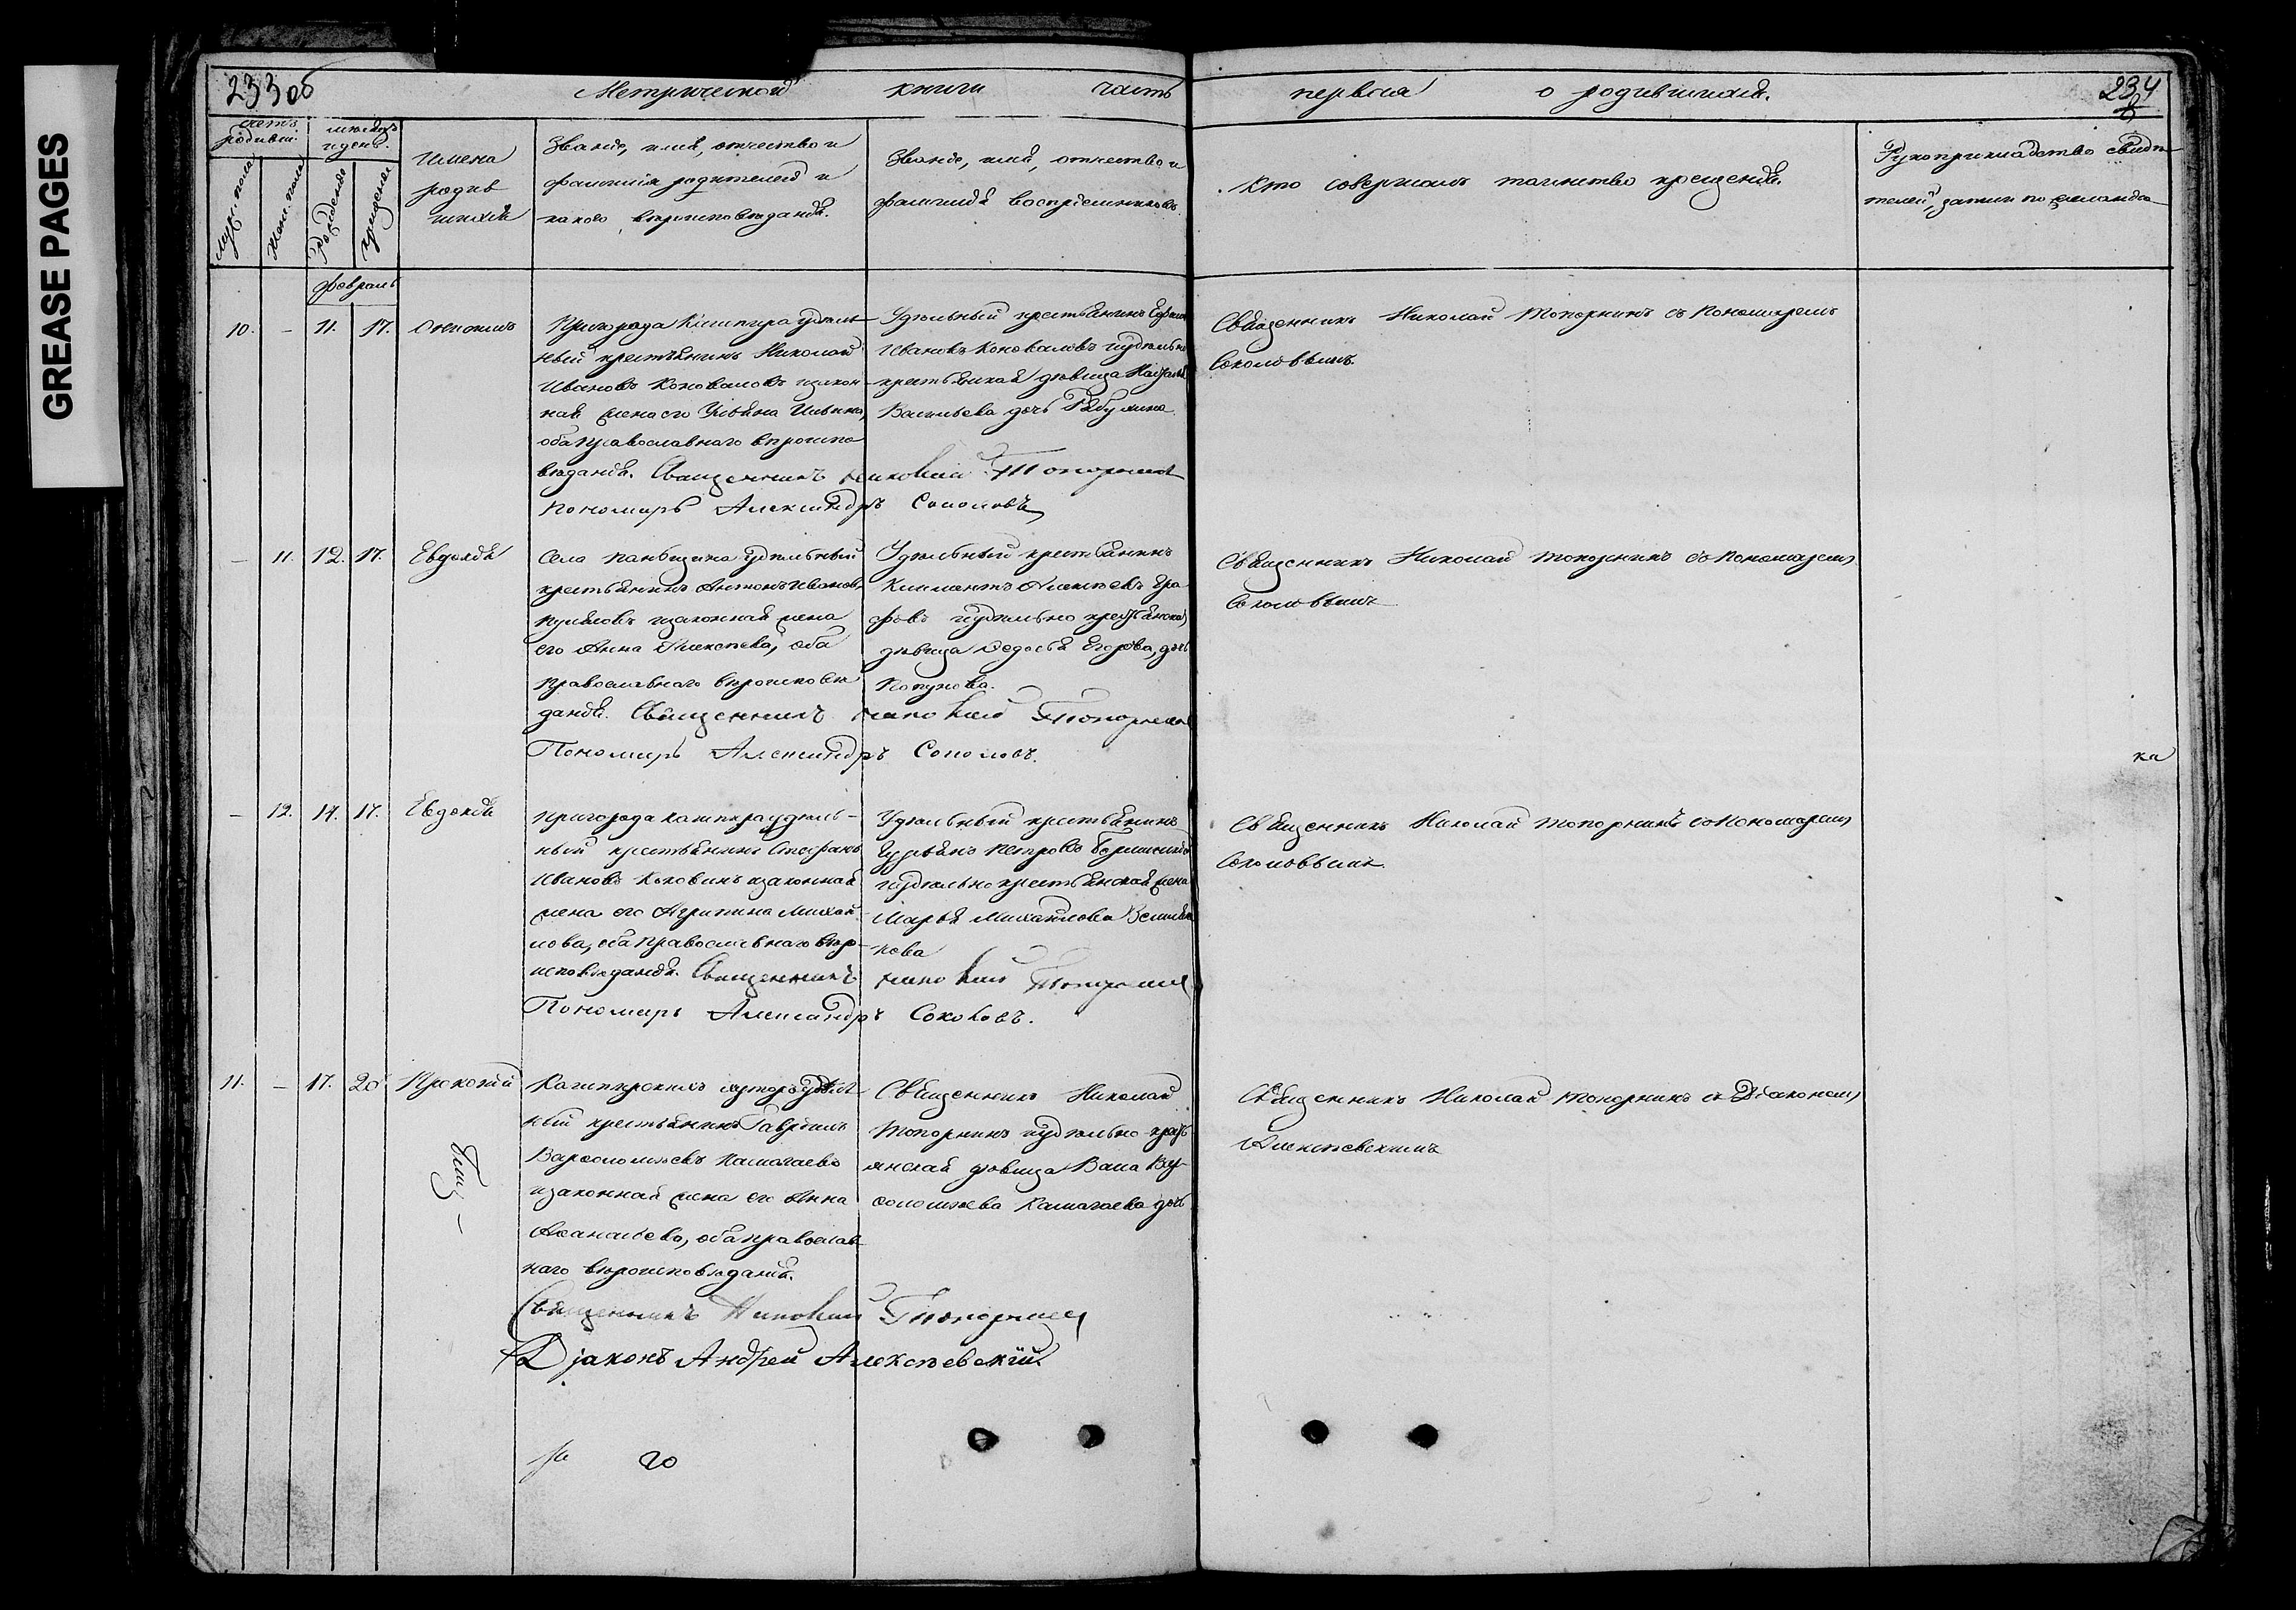 GREASE PAGES
233об
Метрической книги часть
первая о родившихся.
234
счетъ родивш.
мѣсяцъ и день.
муж. пола
жен. пола
рожденія
крещенія
Имена
родив
шихся
Званіе, имя, отчество и
фамилія родителей и
какого вѣроисповѣданія.
Званіе, имя, отчество и
фамилія воспріемниковъ
Кто совершалъ таинство крещенія.
Рукоприкладство свидѣ
телей записи по желанію
Февраль
10. - 11. 17.
Пригорода Кашпира удѣль
ный крестьянинъ Николай
Ивановъ Коноваловъ и закон
ная жена его Ульяна Ильина,
оба православнаго вѣроиспо
вѣданія. Священникъ Николай Топорнинъ
Пономарь Александръ Соколовъ
Удѣльный крестьянинъ
Ивановъ Коноваловъ и удѣльно
крестьянская дѣвица Наталья
Васильева дочь
Священникъ Николай Топорнинъ съ Пономаремъ
Соколовымъ
- 11. 12. 17. Евдокія
Села Паньшина удѣльный
крестьянинъ Антонъ Ивановъ
и законная жена
его Анна Алексѣева, оба
православнаго вѣроисповѣ
данія. Священникъ Николай Топорнинъ
Пономарь Александръ Соколовъ.
Удѣльный крестьянинъ
Климентъ Алексѣевъ Ера
фѣевъ и удѣльно крестьянская
дѣвица Ѳедосья Егорова, дочь
Священникъ Николай Топорнинъ съ Пономаремъ
Соколовымъ
ка
- 12. 14. 17. Евдокія
Пригорода Кашпира удѣль-
ный крестьянинъ Стефанъ
Ивановъ и законная
жена его Агрипина Михай
лова, оба православнаго вѣро-
исповѣданія. Священникъ Николай Топорнинъ
Пономарь Александръ Соколовъ.
Удѣльный крестьянинъ
Гурьянъ Петровъ
и удѣльно крестьянская жена
Марья Михайлова
нова
Священникъ Николай Топорнинъ съ Пономаремъ
Соколовымъ
11. - 17. 20 Прокопій
Кашпирскихъ хуторъ удѣль
ный крестьянинъ Гаврiилъ
Варѳоломѣевъ Камагаевъ
и законная жена его Анна
Аѳанасьева, оба православ
наго вѣроисповѣданія.
Священникъ Николай Топорнинъ
Діаконъ Андрей Алексѣевскій.
Священникъ Николай
Топорнинъ и удѣльно крестъ
янская дѣвица
Камагаева дочь
Священникъ Николай Топорнинъ съ Діакономъ
Алексѣевскимъ
го